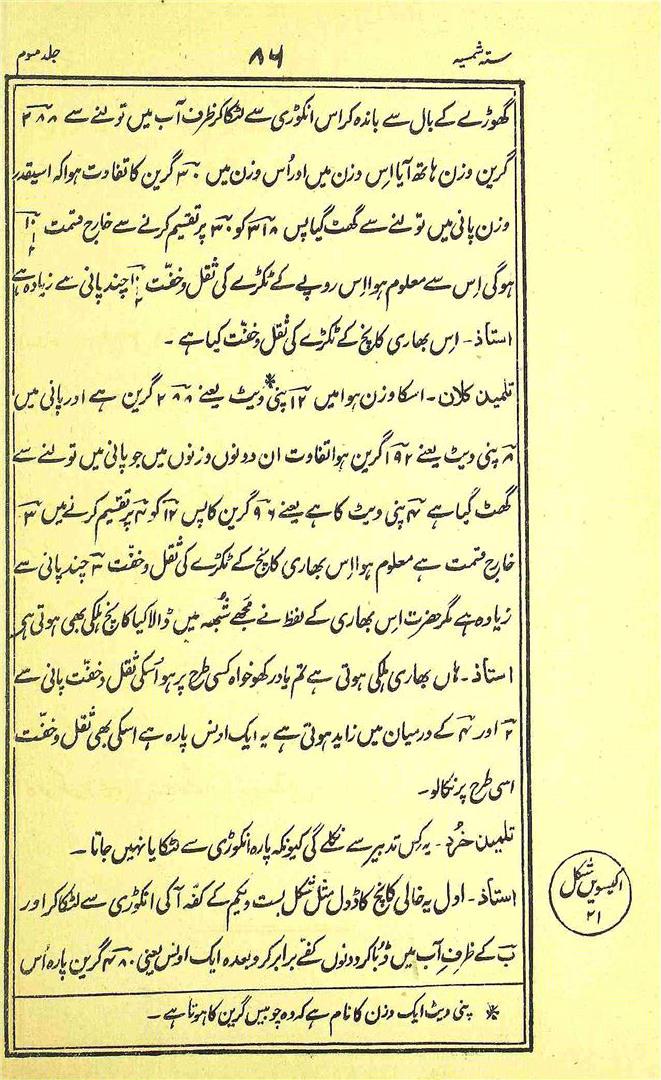 ستہ شمسیہ ۸۶ جلد سوم
گھوڑے کے بال سے باندہ کر اس انکوڑی سے لٹکا کر ظرف آب میں تولنے سے ۲۸۸
گرین وزن ہاتھ آیا اِس وزن میں اور اُس وزن میں ۳۰ گرین کا تفاوت ہوا کہ اسیقدر
وزن پانی میں تولنے سے گھٹ گیا پس ۳۱۸ کو ۳۰ پر تقسیم کرنے سے خارج قسمت ۱۰
ہوگی اِس سے معلوم ہوا اِس روپے کے ٹکڑے کی ثقل و خفّت ۱۰ چند پانی سے زیادہ ہے
استاذ ۔ اِس بھاری کانچ کے ٹکڑے کی ثقل و خفّت کیا ہے ۔
تلمیذ کلان ۔ اسکا وزن ہوا میں ۱۲ پنی* ویٹ یعنے ۲۸۸ گرین ہے اور پانی میں
۸ پنی ویٹ یعنے ۱۹۲ گرین ہوا تفاوت ان دونوں وزنوں میں جو پانی میں تولنے سے
گھٹ گیا ہے ۴ پنی ویٹ کا ہے یعنے ۹۶ گرین کا پس ۱۲ کو ۴ پر تقسیم کرنے میں ۳
خارج قسمت ہے معلوم ہوا اِس بھاری کانچ کے ٹکڑے کی ثقل و خفّت ۳ چند پانی سے
زیادہ ہے مگر حضرت اِس بھاری کے لفظ نے مجھے شُبھہ میں ڈالا کیا کانچ ہلکی بھی ہوتی ہی
استاذ ۔ ہاں بھاری ہلکی ہوتی ہے تم یاد رکھو خواہ کسی طرح پر ہو اُسکی ثقل و خفّت پانی سے
۲ اور ۴ کے درمیان میں زاید ہوتی ہے یہ ایک اونس پارہ ہے اسکی بھی ثقل و خفّت
اسی طرح پر نکالو ۔
تلمیذ خُرد ۔ یہ کِس تدبیر سے نکلے گی کیونکہ پارہ انکوڑی سے لٹکایا نہیں جاتا ۔
استاذ ۔ اول یہ خالی کانچ کا ڈول مثل شکل بست ویکم کے کفّہ آ کی انکوڑی سے لٹکا کر اور
بؔ کے ظرفِ آب میں ڈبا کر دونوں کفّے برابر کرو بعدہ ایک اونس یعنی ۴۸۰ گرین پارہ اُس
اکیسویں شکل
۲۱
* پنی ویٹ ایک وزن کا نام ہے کہ وہ چوبیس گرین کا ہوتا ہے ۔